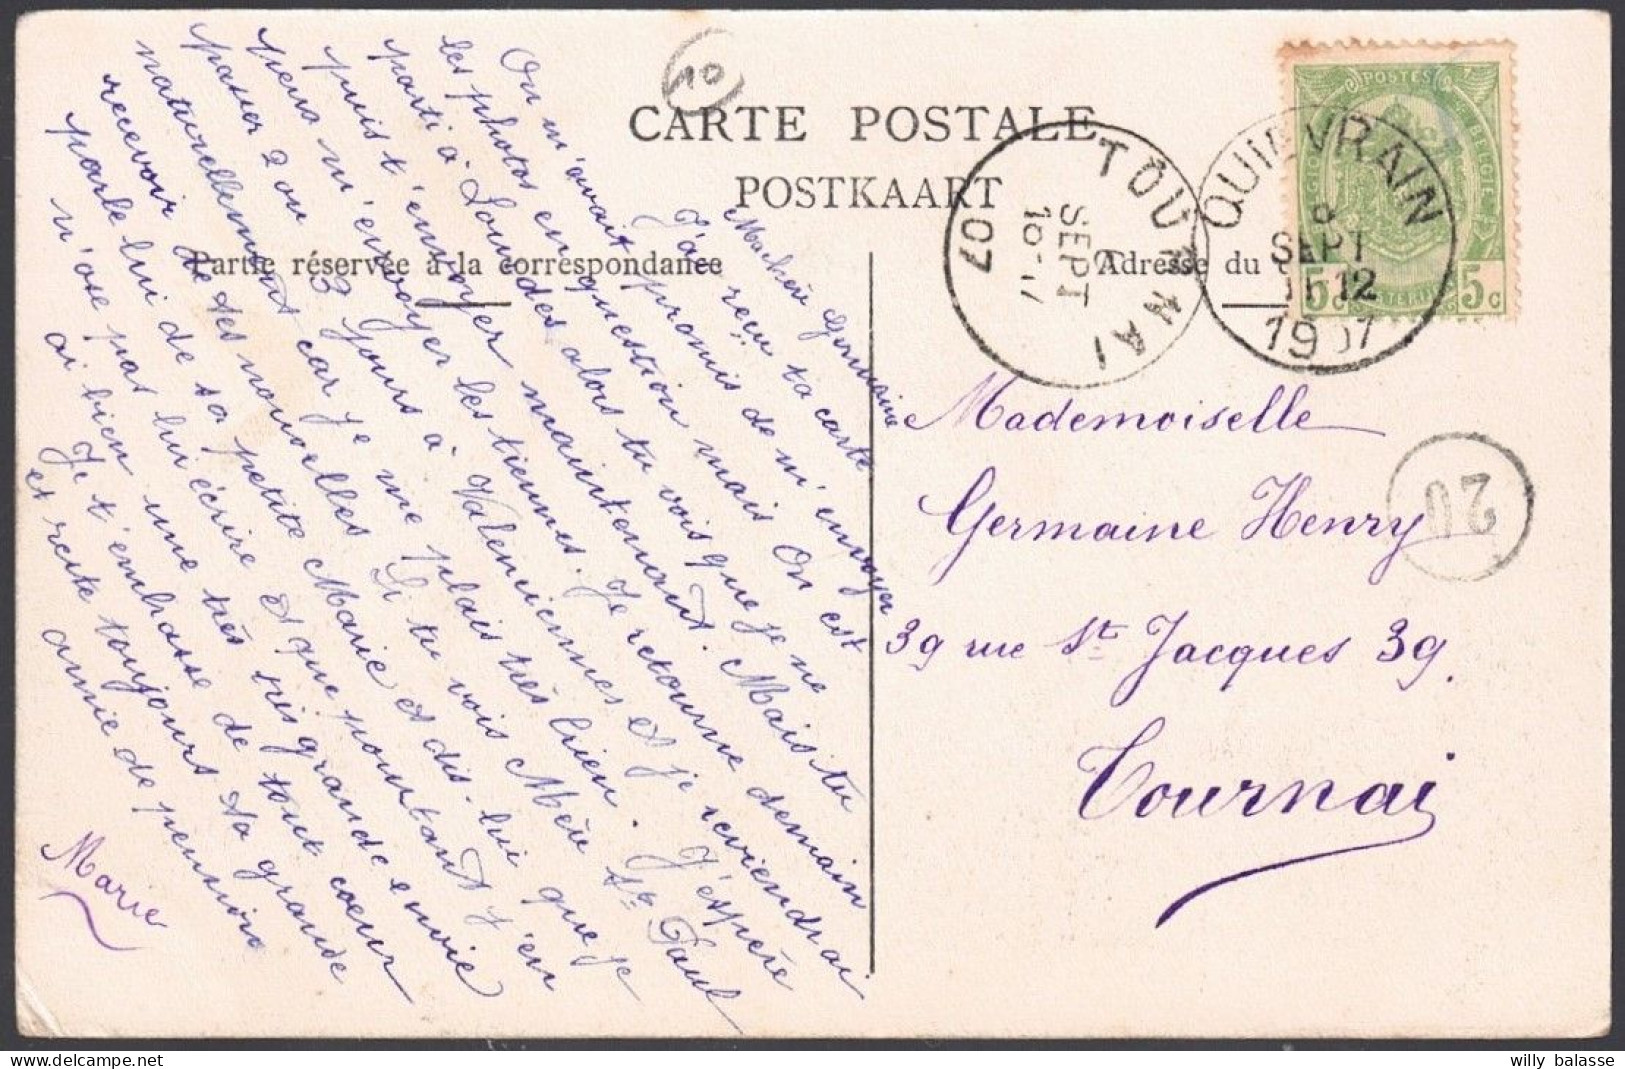 10
CARTE POSTALE
POSTKAART
Partie réservée à la correspondance
Adresse du
POSTES
BELGIE
5c 5c
QUIEVRAIN
8
SEPT
11-12
1907
TOURNAI
SEPT
16-17
07
20
Ma chère Germaine
J'ai reçu ta carte
On m'avait promis de m'envoyer
les photos en question mais On est
parti à Lourdes alors tu vois que je ne
puis t'envoyer maintenant. Mais tu
peux m'envoyer les tiennes. Je retourne demain
passer 2 ou 3 jours à Valenciennes et je reviendrai
naturellement car je me plais très bien. J'espère
recevoir de tes nouvelles Si tu vois Mère Ste Paul
parle lui de sa petite Marie et dis-lui que je
n'ose pas lui écrire et que pourtant j'en
ai bien une très très grande envie
Je t'embrasse de tout coeur
et reste toujours ta grande
amie de pension
Marie
Mademoiselle
Germaine Henry
39 rue St Jacques 39.
Tournai
willy balasse